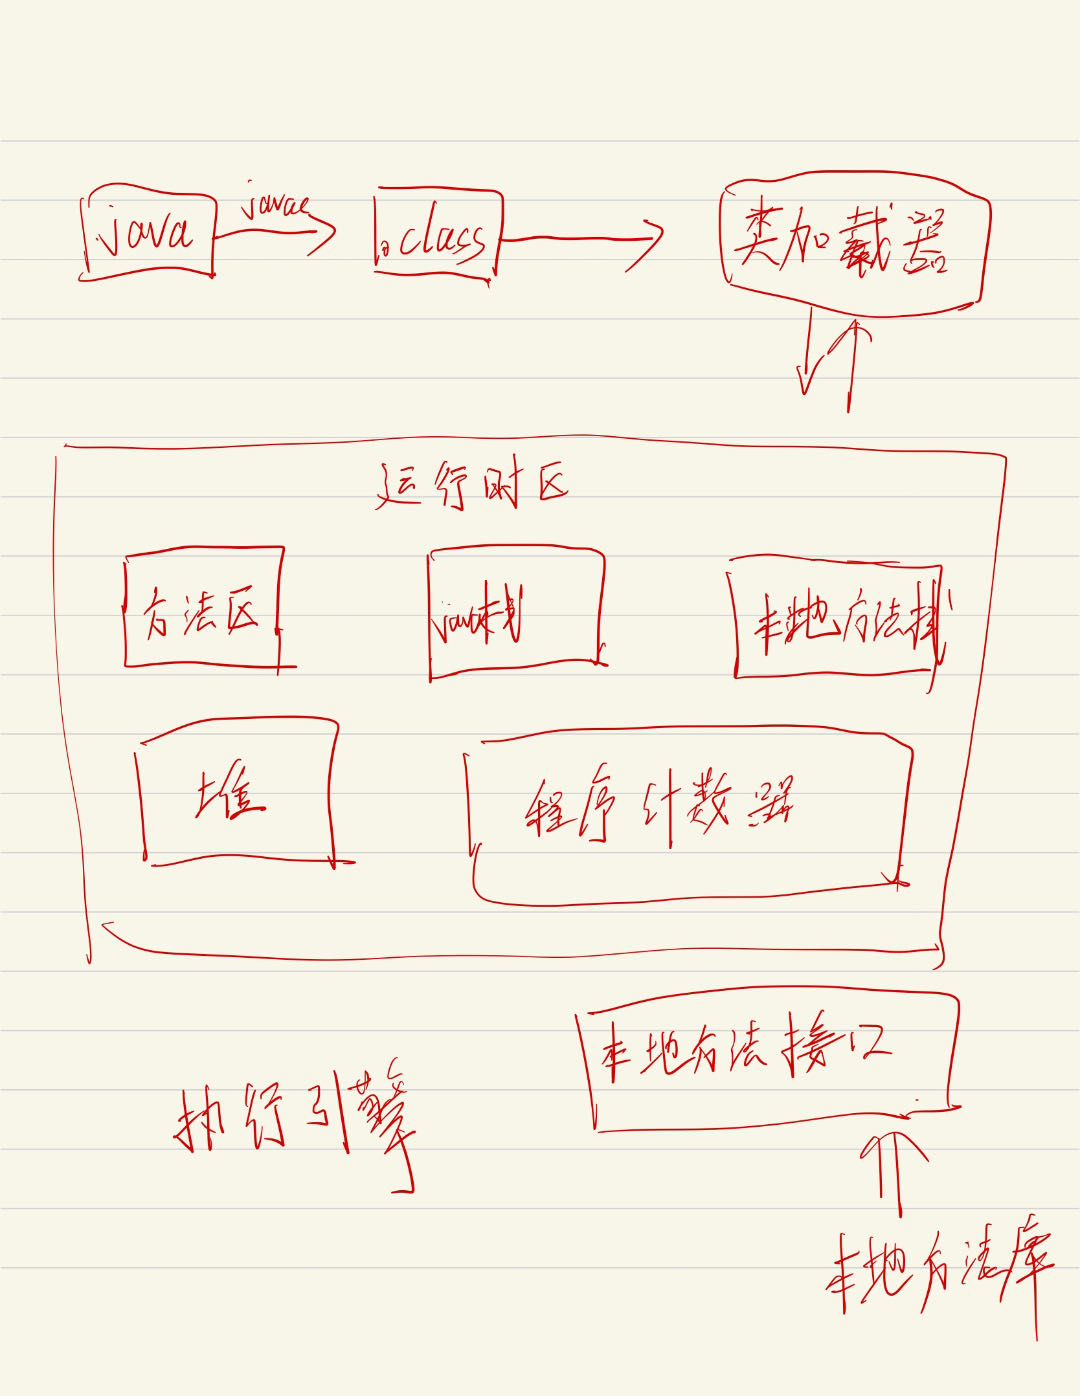 java
javac
.class
类加载器
运行时区
方法区
java栈
本地方法栈
堆
程序计数器
本地方法接口
执行引擎
本地方法库